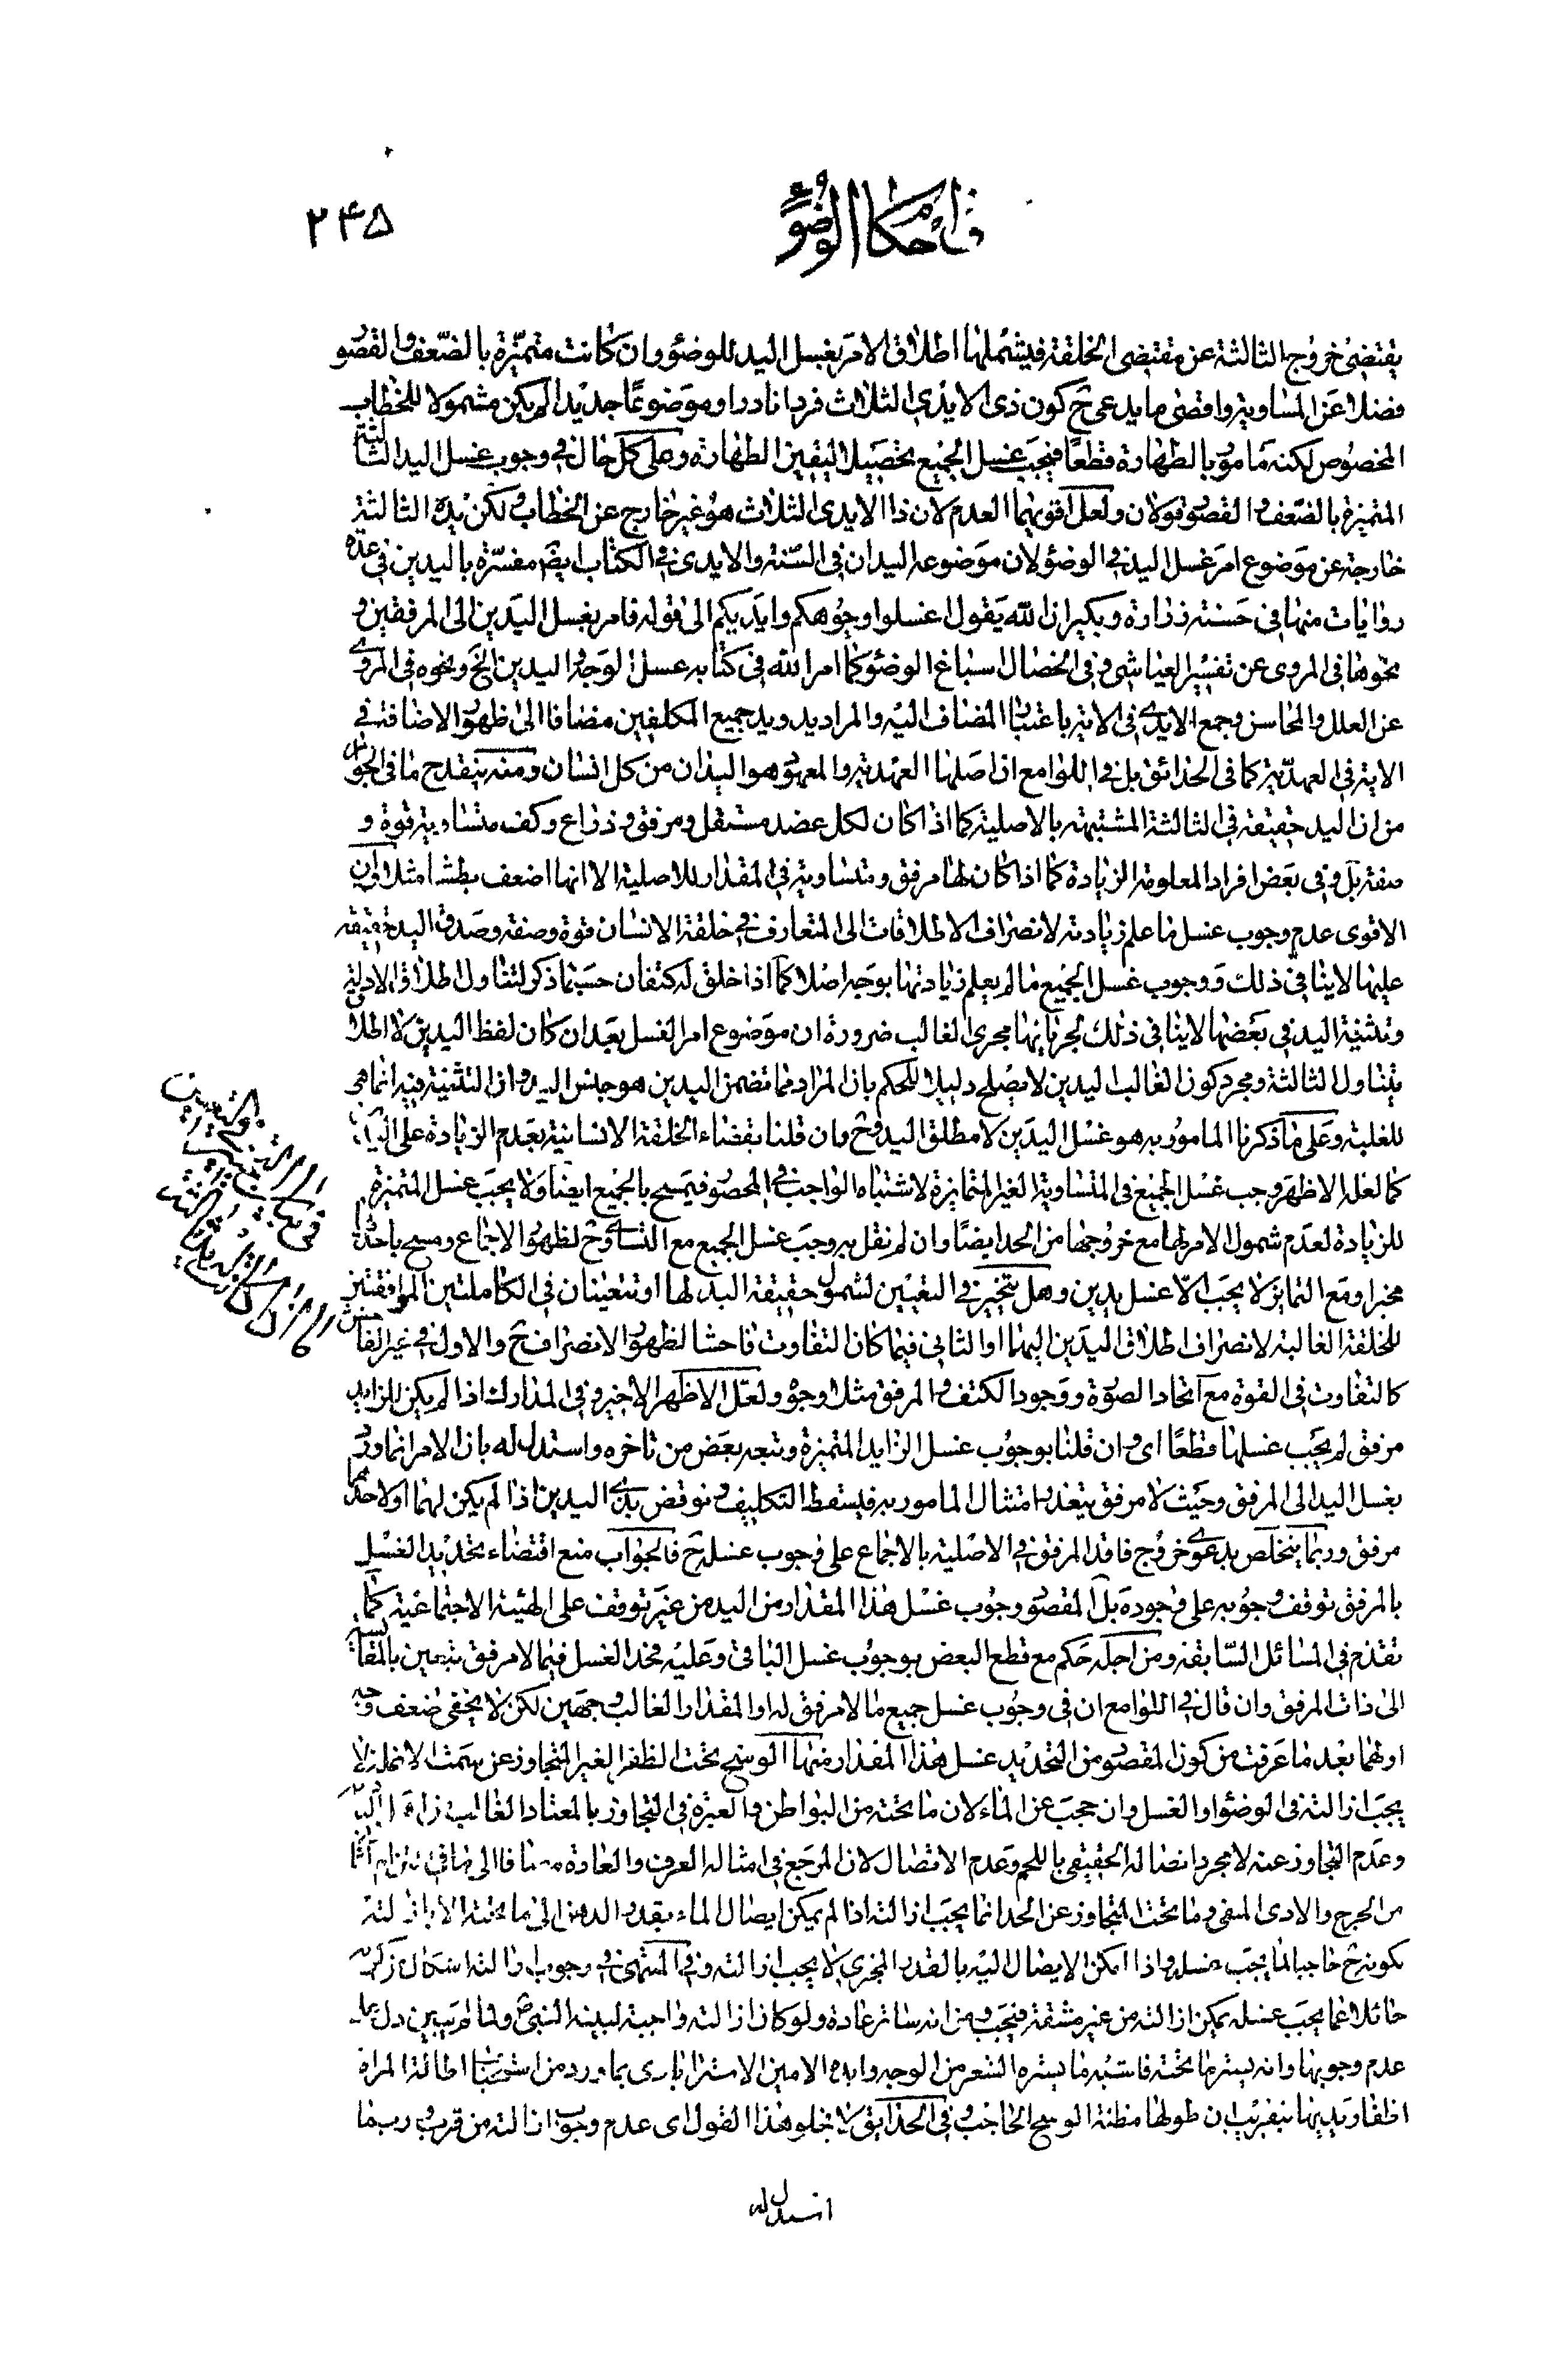 في احكام الوضوء
٢٤٥
يقتضي خروج الثالثة عن مقتضى الخلقة فيشملها اطلاق الامر بغسل اليد للوضوء وان كانت متميزة بالضعف والقصو
فضلا عن المساوية واقصى ما يدعى ح كون ذي الايدي الثلاث فردا نادرا وموضوعا جديدا لم يكن مشمولا للخطاب
المخصوص لكنه مامور بالطهارة قطعا فيجب غسل الجميع تحصيلا ليقين الطهارة وعلى كل حال في وجوب غسل اليد الثالثة
المتميزة بالضعف والقصور قولان ولعل اقويهما العدم لان ذا الايدي الثلاث هو غير خارج عن الخطاب لكن يده الثالثة
خارجة عن موضوع امر غسل اليد في الوضوء لان موضوعه اليدان في السنة والايدي في الكتاب ايضا مفسرة باليدين في عدة
روايات منها في حسنة زرارة وبكير ان الله يقول اغسلوا وجوهكم وايديكم الى قوله فامر بغسل اليدين الى المرفقين و
نحوها في المروي عن تفسير العياشي وفي الخصال اسباغ الوضوء كما امر الله في كتابه غسل الوجه واليدين الخ ونحوه في المروي
عن العلل والمحاسن وجمع الايدي في الاية باعتبار المضاف اليه والمراد يد ويد جميع المكلفين مضافا الى ظهور الاضافة في
الاية في العهدية كما في الحدائق بل في اللوامع ان اصلها العهدية والمعهود هو اليدان من كل انسان ومنه ينقدح ما في الجواهر
من ان اليد حقيقة في الثالثة المشتبهة بالاصلية كما اذا كان لكل عضد مستقل ومرفق وذراع وكف متساوية قوة و
صفة بل وفي بعض افراد المعلومة الزيادة كما اذا كان لها مرفق ومتساوية في المقدار للاصلية الا انها اضعف بطشا مثلا فان
الاقوى عدم وجوب غسل ما علم زيادته لانصراف الاطلاقات الى المتعارف في خلقة الانسان قوة وصفة وصدق اليد حقيقة
عليها لا ينافي ذلك ووجوب غسل الجميع ما لم يعلم زيادتها بوجه اصلا كما اذا خلق له كتفان حسبما ذكر لتناول اطلاق الادلة
وتثنية اليد في بعضها لا ينافي ذلك لجريانها مجرى الغالب ضرورة ان موضوع امر الغسل بعد ان كان لفظ اليدين لا اطلاق
يتناول الثالثة ومجرد كون الغالب اليدين لا يصلح دليلا للحكم بان المراد مما تضمن اليدين هو جنس اليد وان التثنية فيه انما هي
للغلبة وعلى ما ذكرنا المامور به هو غسل اليدين لا مطلق اليد وح وان قلنا بقضاء الخلقة الانسانية بعدم الزيادة على
كما لعله الاظهر وجب غسل الجميع في المتساوية الغير المتمايزة لاشتباه الواجب في المحصور فيمسح بالجميع ايضا ولا يجب غسل المتميزة
للزيادة لعدم شمول الامر لها مع خروجها من الحد ايضا وان لم نقل به وجب غسل الجميع مع التساوي ح لظهور الاجماع ومسح باحدها
مخيرا ومع التمايز لا يجب الا غسل يدين وهل يتخير في التعيين لشمول حقيقة اليد لها او تتعينان في الكاملتين الموافقتين
للخلقة الغالبة لانصراف اطلاق اليدين اليها او الثاني فيما كان التفاوت فاحشا لظهور الانصراف ح والاول في غير الفاحش
كالتفاوت في القوة مع اتحاد الصورة ووجود الكتف والمرفق مثلا وجوه ولعل الاظهر الاخير وفي المدارك اذا لم يكن للزايد
مرفق لم يجب غسلها قطعا اي وان قلنا بوجوب غسل الزايد المتميزة وتبعه بعض من تاخره واستدل له بان الامر انما ورد
بغسل اليد الى المرفق وحيث لا مرفق يتعذر امتثال المامور به فيسقط التكليف ونوقض بذي اليدين اذا لم يكن لهما او لاحدهما
مرفق وربما يتخلص بدعوى خروج فاقد المرفق في الاصلية بالاجماع على وجوب غسله ح فالجواب منع اقتضاء تحديد الغسل
بالمرفق توقف وجوبه على وجوده بل المقصود وجوب غسل هذا المقدار من اليد من غير توقف على الهيئة الاجتماعية كما
تقدم في المسائل السابقة ومن اجله حكم مع قطع البعض بوجوب غسل الباقي وعليه فحد الغسل فيما لا مرفق يتعين بالمقايسة
الى ذات المرفق وان قال في اللوامع ان في وجوب غسل جميع ما لا مرفق له او المقدار الغالب وجهين لكن لا يخفى ضعف وجه
اولهما بعد ما عرفت من كون المقصود من التحديد غسل هذا المقدار منها الوسخ تحت الظفر الغير المتجاوز عن سمت الانملة لا
يجب ازالته في الوضوء او الغسل وان حجب عن الماء لان ما تحته من البواطن والعبرة في التجاوز بالمعتاد الغالب
وعدم التجاوز عنه لا مجرد اتصاله الحقيقي باللحم وعدم الاتصال لان المرجع في امثاله العرف والعادة مضافا الى ما في
من الحرج والاذى المنفي وما تحت المتجاوز عن الحد انما يجب ازالته اذا لم يمكن ايصال الماء بقدر الدهن الى ما تحته الا بازالته
لكونه ح حاجبا لما يجب غسله واذا امكن الايصال اليه بالقدر المجزي لا يجب ازالته وفي المنتهى في وجوب ازالته اشكال
حائلا عما يجب غسله يمكن ازالته من غير مشقة فيجب ومن انه ساتر عادة ولو كان ازالته واجبة لبينه النبي ص ولما لم يبين دل على
عدم وجوبها وانه يستر ما تحته فاشبه ما يستره الشعر من الوجه وايده الامين الاسترابادي بما ورد من استحباب اطالة المراة
اظفار يديها بتقريب ان طولها مظنة الوسخ الحاجب وفي الحدائق لا يخلو هذا القول اي عدم وجوب ازالته من قرب ورب ما
استدل له